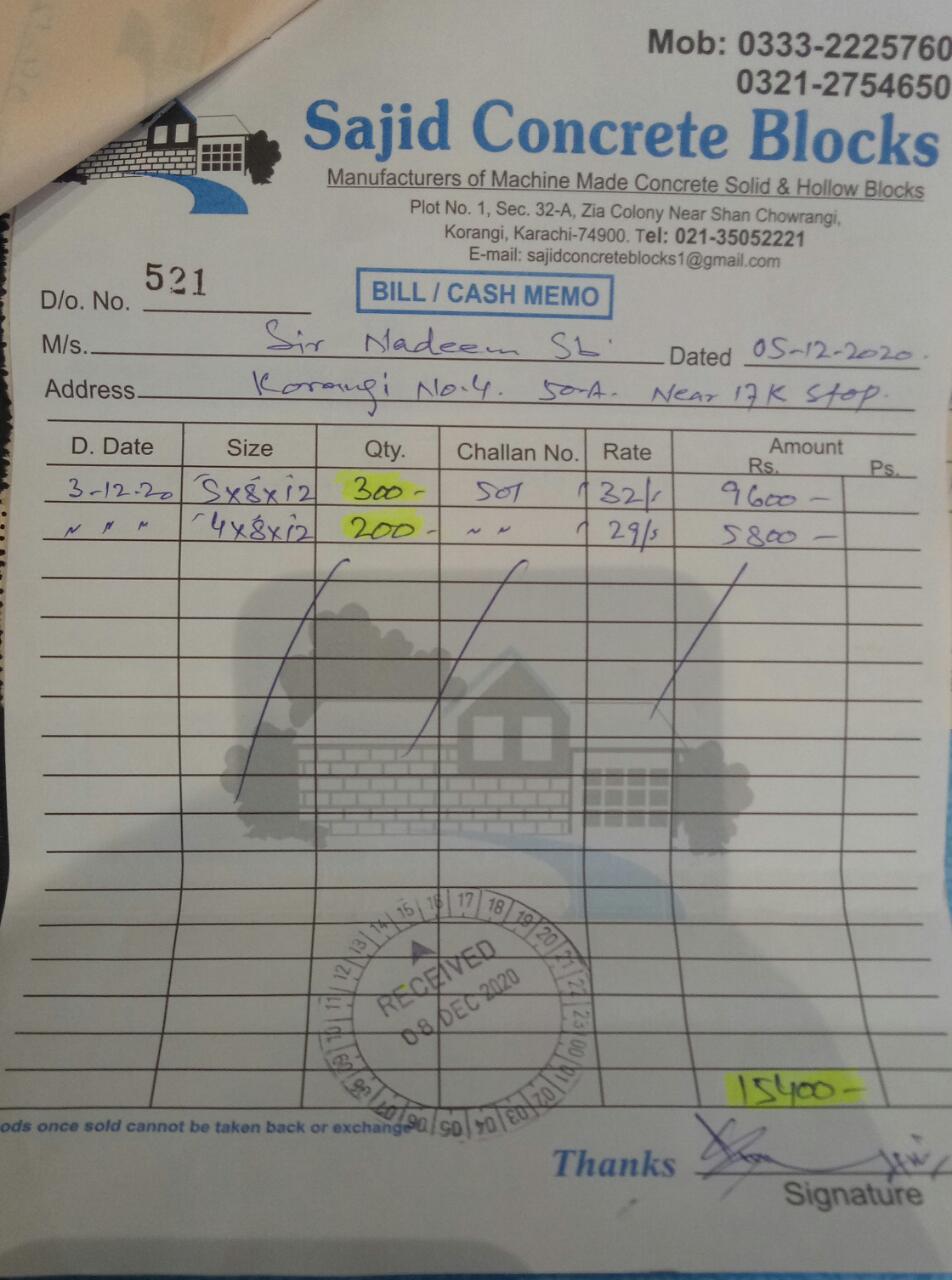 Mob: 0333-2225760
0321-2754650
Sajid Concrete Blocks
Manufacturers of Machine Made Concrete Solid & Hollow Blocks
Plot No. 1, Sec. 32-A, Zia Colony Near Shan Chowrangi,
Korangi, Karachi-74900. Tel: 021-35052221
E-mail: sajidconcreteblocks1@gmail.com
D/o. No. 521
BILL / CASH MEMO
M/s. Sir Nadeem Sb. Dated 05-12-2020.
Address Korangi No.4. 50-A. Near 17K Stop.
D. Date Size Qty. Challan No. Rate Amount
Rs. Ps.
3-12-20 5x8x12 300- 501 32/- 9600-
" " " 4x8x12 200- " " 29/- 5800-
15 16 17 18 19 20 21 22 23 00 01 02 03 04 05 06 07 08 09 10 11 12 13 14
RECEIVED
08 DEC 2020
15400-
ods once sold cannot be taken back or exchange
Thanks
Signature